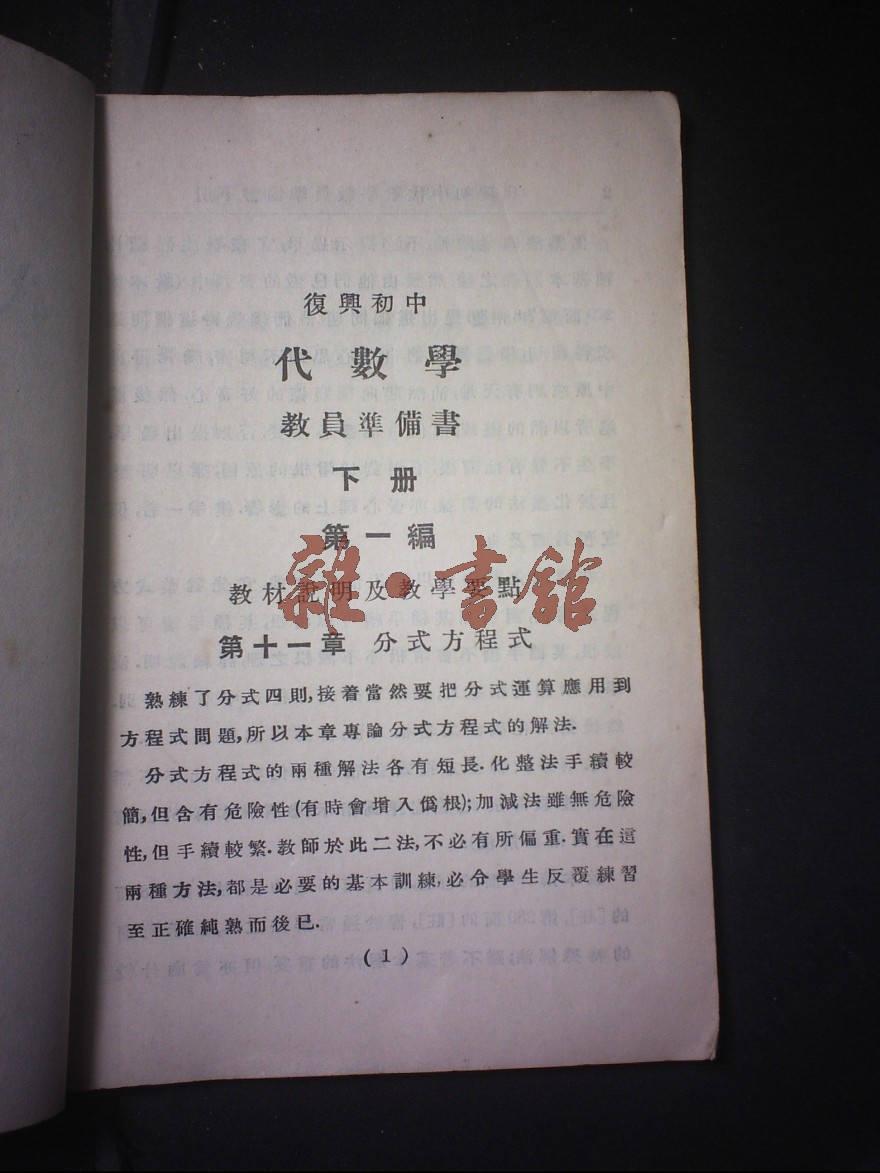 復興初中
代數學
教員準備書
下册
第一編
教材說明及教學要點
雜·書館
第十一章 分式方程式
熟練了分式四則,接着當然要把分式運算應用到
方程式問題,所以本章專論分式方程式的解法.
分式方程式的兩種解法各有短長.化整法手續較
簡,但含有危險性(有時會增入僞根);加減法雖無危險
性,但手續較繁.教師於此二法,不必有所偏重.實在這
兩種方法,都是必要的基本訓練,必令學生反覆練習
至正確純熟而後已.
(1)